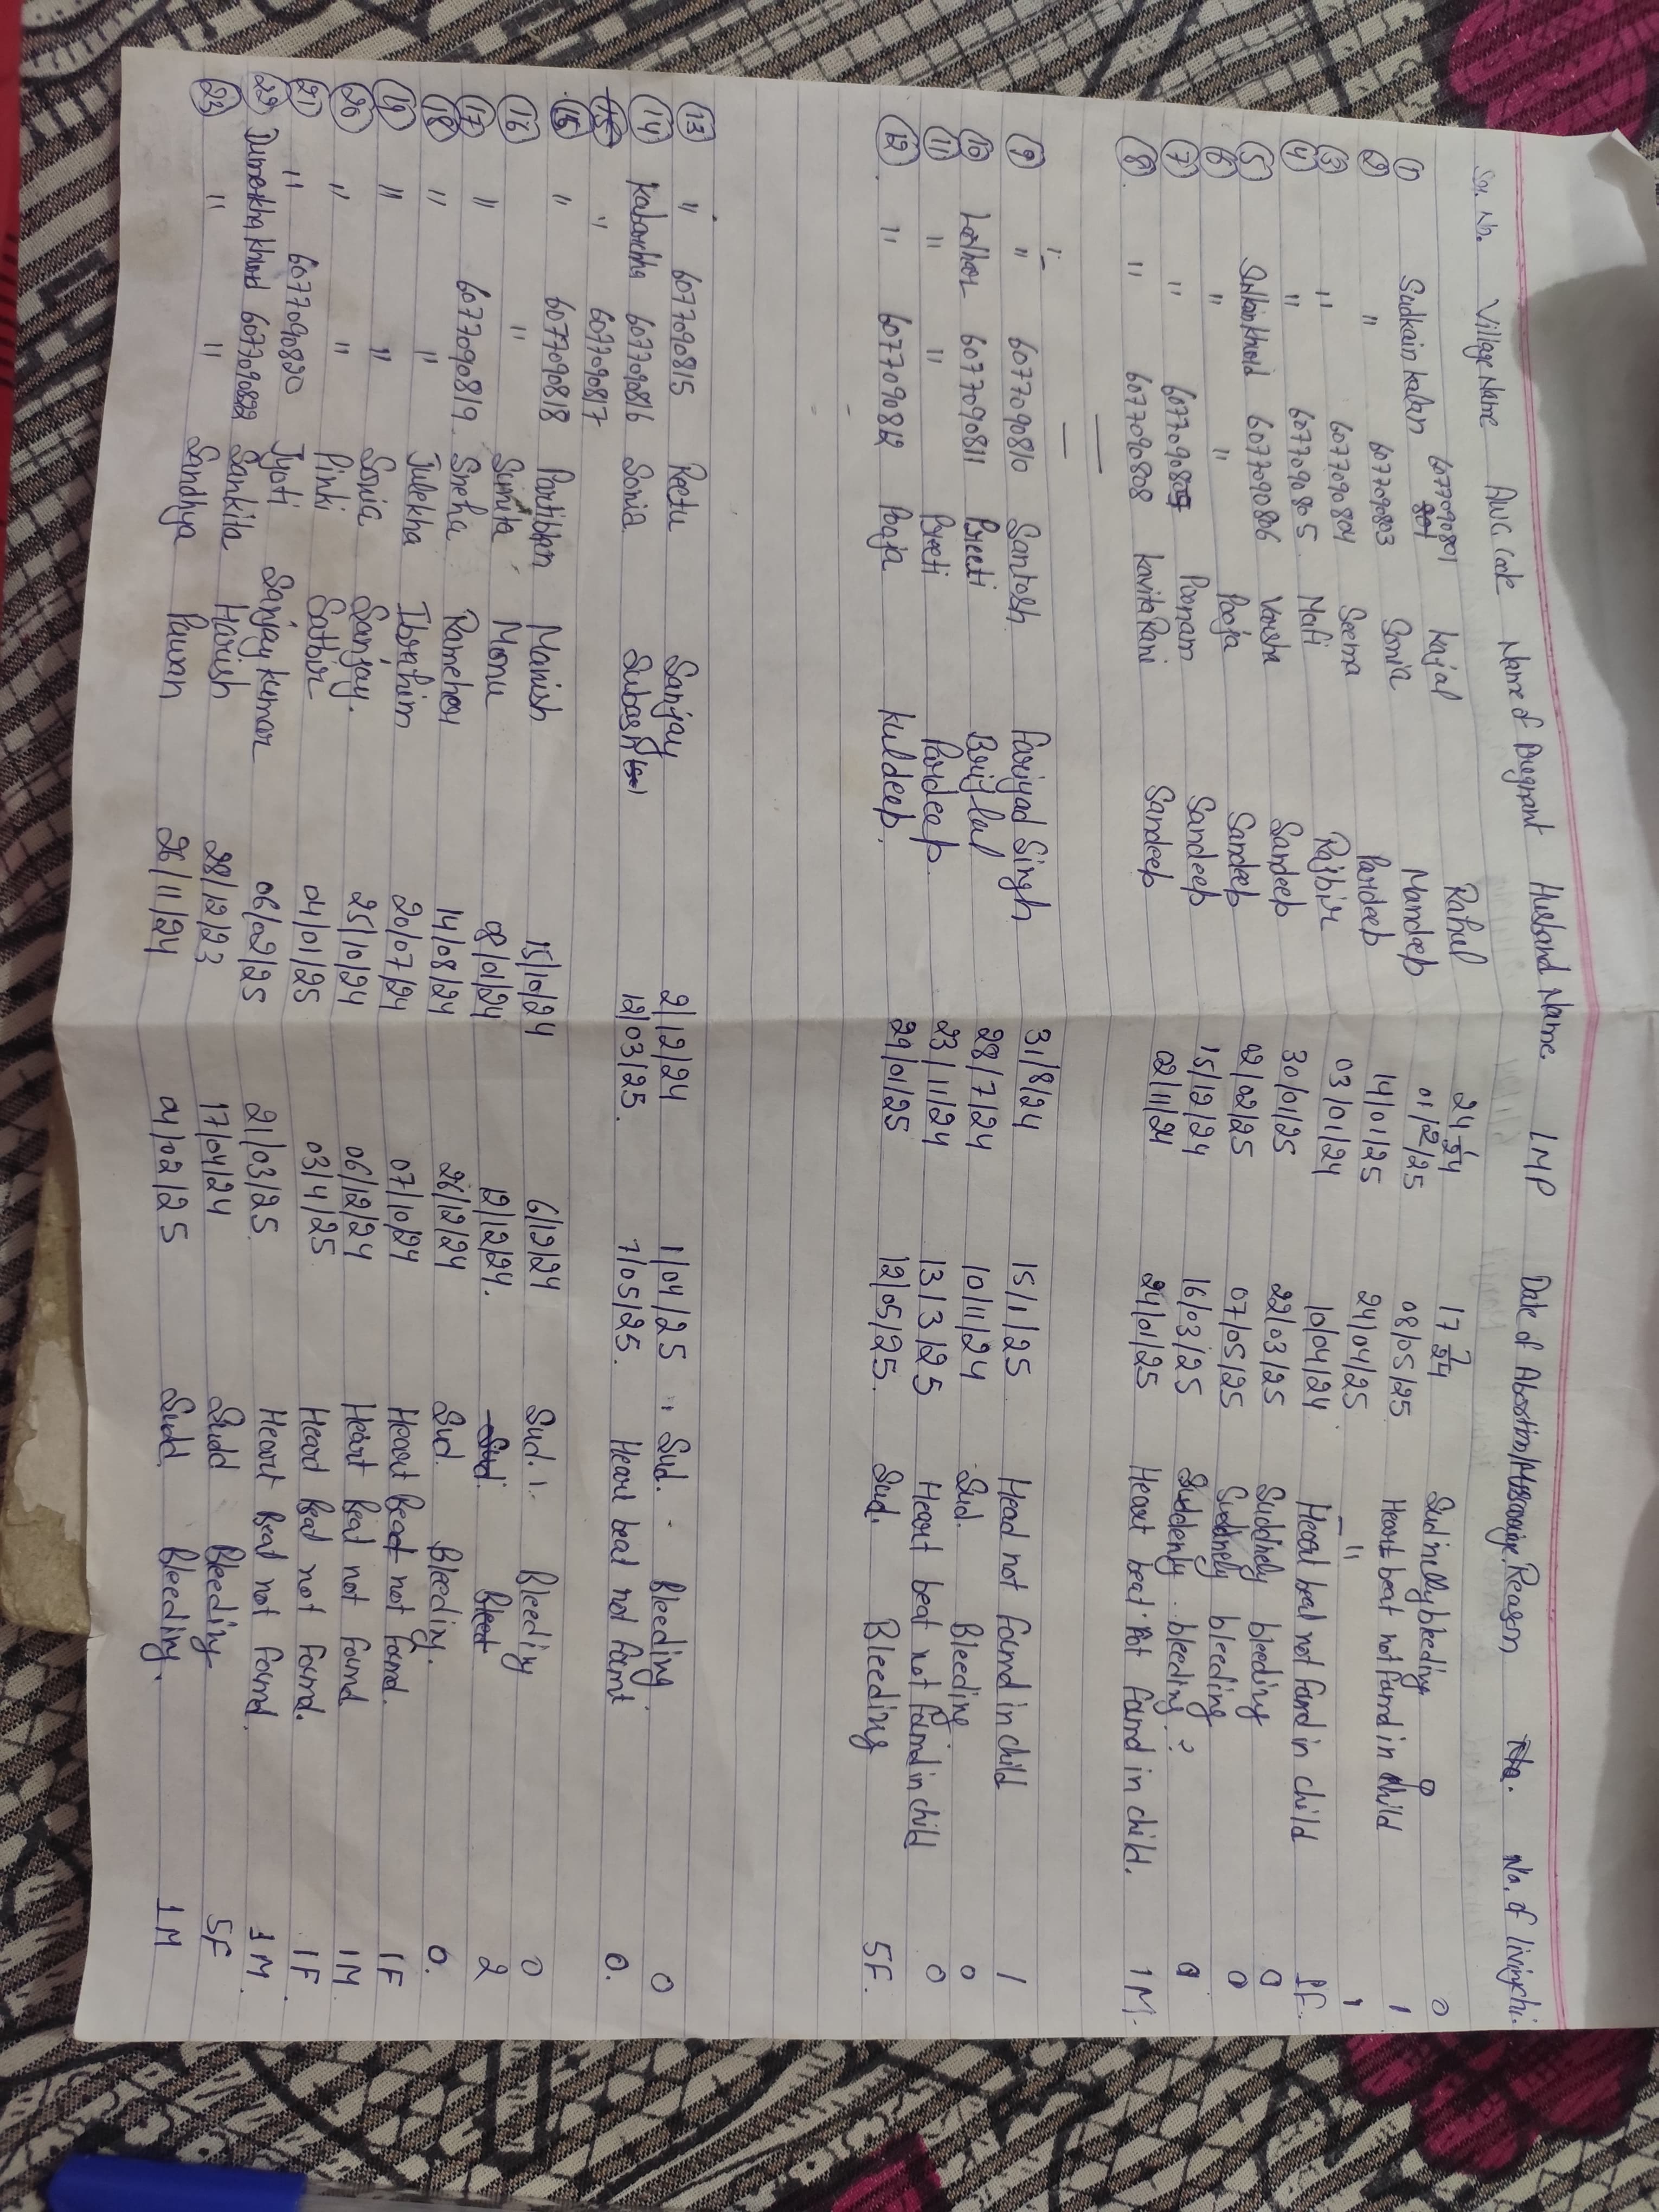 Sr. No. Village Name AWC Code Name of Pregnant Husband Name LMP Date of Abortion/Miscarriage. Reason No. of livingchi.
① Sudkain kalan 6077090801 Kajal Rahul 24 1/24 17 7/24 Sudnellybleeding 0
② " 6077090803 Sonia Mandeep 01/2/25 08/05/25 Heart beat not found in child 1
③ " 6077090804 Seema Pardeep 14/01/25 24/04/25 —" 1
④ " 6077090805 Mafi Rajbir 03/01/24 10/04/24 Heart beat not found in child 1F.
⑤ 6077090806 Varsha Sandeep 30/01/25 22/03/25 Suddnely bleeding 0
⑥ " " Pooja Sandeep 02/02/25 07/05/25 Suddnely bleeding 0
⑦ " Poonam Sandeep 15/12/24 16/03/25 Suddenly bleeding.?
⑧ " 6077090808 Kavita Rani Sandeep 02/11/24 24/01/25 Heart beat not found in child. 1M.
⑨ " 6077090810 Santosh Fariyad Singh 31/8/24 15/1/25 Head not found in child 1
⑩ 6077090811 Preeti Brijlal 28/7/24 10/11/24 Sud. Bleeding. 0
⑪ " " Preeti Pardeep 23/11/24 13/3/25 Heart beat not found in child 0
⑫ " 6077090812 Pooja Kuldeep. 29/01/25 12/05/25. Sud. Bleeding 5F.
⑬ " 6077090815 Reetu Sanjay 2/12/24 1/04/25 Sud. Bleeding. 0
⑭ Kabarchha 6077090816 Sonia Subash 12/03/25. 7/05/25. Heart beat not fount 0.
" 6077090817
⑮ " 6077090818 Manish 15/10/24 6/12/24 Sud. Bleeding 0
⑯ " Sunita Monu 08/01/24 12/12/24. Sud. Bleed 2
⑰ " 6077090819 Sneha Ramehar 14/08/24 26/12/24 Sud. Bleeding. 0.
⑱ " " Julekha Ibrahim 20/07/24 07/10/24 Heart Beat not found. 1F
⑲ " " Sonia Sanjay. 25/10/24 06/12/24 Heart Beat not found 1M
⑳ " " Pinki Satbir 04/01/25 03/4/25 Heart Beat not found. 1F.
㉑ " 6077090820 Jyoti Sanjay kumar 06/02/25 21/03/25. Heart Beat not found. 1M.
㉒ Dumerkha khurd 6077090822 Sankita Harish 28/12/23 17/04/24 Sudd Bleeding 5F
㉓ " " Sandhya Pawan 26/11/24 04/02/25 Sudd. Bleeding. 1M